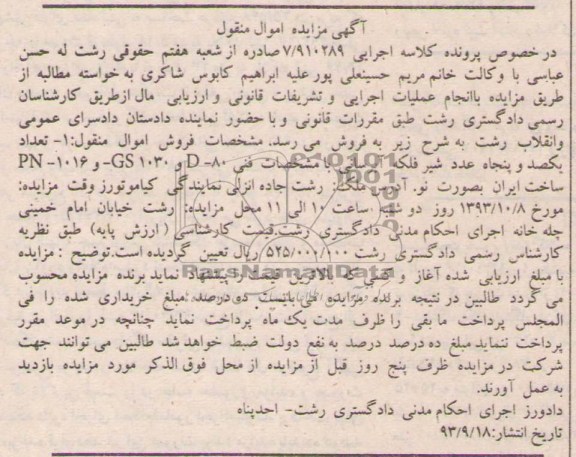 آگهی مزایده اموال منقول
در خصوص پرونده کلاسه اجرایی ۷/۹۱۰۲۸۹ صادره از شعبه هفتم حقوقی رشت له حسن
عباسی با وکالت خانم مریم حسینعلی پور علیه ابراهیم کابوس شاکری به خواسته مطالبه از
طریق مزایده باانجام عملیات اجرایی و تشریفات قانونی و ارزیابی مال ازطریق کارشناسان
رسمی دادگستری رشت طبق مقررات قانونی و با حضور نماینده دادستان دادسرای عمومی
وانقلاب رشت به شرح زیر به فروش می رسد. مشخصات فروش اموال منقول:۱- تعداد
یکصد و پنجاه عدد شیر فلکه با مشخصات فنی D -۸۰ و GS ۱۰۳۰- و PN -۱۰۱۶
ساخت ایران بصورت نو. آدرس ملک: رشت جاده انزلی نمایندگی کیاموتورز وقت مزایده:
مورخ ۱۳۹۳/۱۰/۸ روز دو شنبه ساعت ۱۰ الی ۱۱ محل مزایده: رشت خیابان امام خمینی
چله خانه اجرای احکام مدنی دادگستری رشت.قیمت کارشناسی (ارزش پایه) طبق نظریه
کارشناس رسمی دادگستری رشت ۵۲۵/۰۰۰/۰۰۰ ریال تعیین گردیده است.توضیح : مزایده
با مبلغ ارزیابی شده آغاز و بالاترین پیشنهاد نماید برنده مزایده محسوب
می گردد طالبین در نتیجه برنده مزایده می بایست ده درصد مبلغ خریداری شده را فی
المجلس پرداخت ما بقی را ظرف مدت یک ماه پرداخت نماید چنانچه در موعد مقرر
پرداخت ننماید مبلغ ده درصد درصد به نفع دولت ضبط خواهد شد طالبین می توانند جهت
شرکت در مزایده ظرف پنج روز قبل از مزایده از محل فوق الذکر مورد مزایده بازدید
به عمل آورند.
دادورز اجرای احکام مدنی دادگستری رشت- احدپناه
تاریخ انتشار:۹۳/۹/۱۸